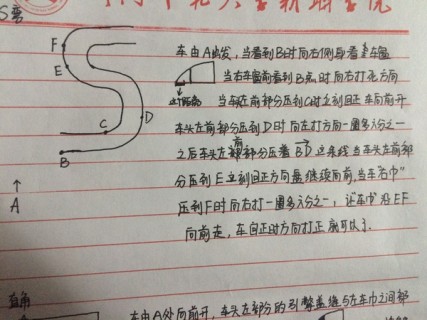 S弯
F
E
C
D
B
A
车由A出发，当看到B时向右侧
当右车盘前看到B点时向右打死方向
当车左前部分压到C时立刻回正车向前开
车头左前部分压到D时向左打方向一圈多六分之一
之后车头左前部分压着BD这条线当车头左前部
分压到E立刻回正方向盘继续向前，当车右巾"
压到F时向右打一圈多六分之一，让车巾沿EF
向前走，车回正时方向打正就可以了.
直角
车由A处向前开，车头左部分的引擎盖缝与左车巾之间部